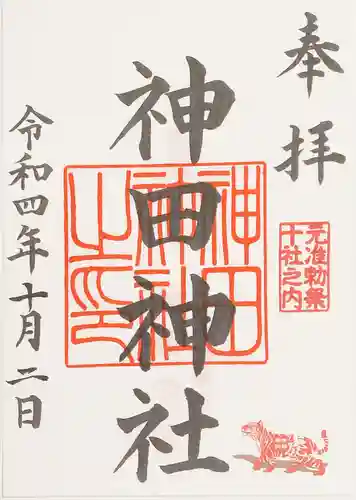 奉拝
元准勅祭
十社之内
神田神社
神田神社之印
令和四年十月二日